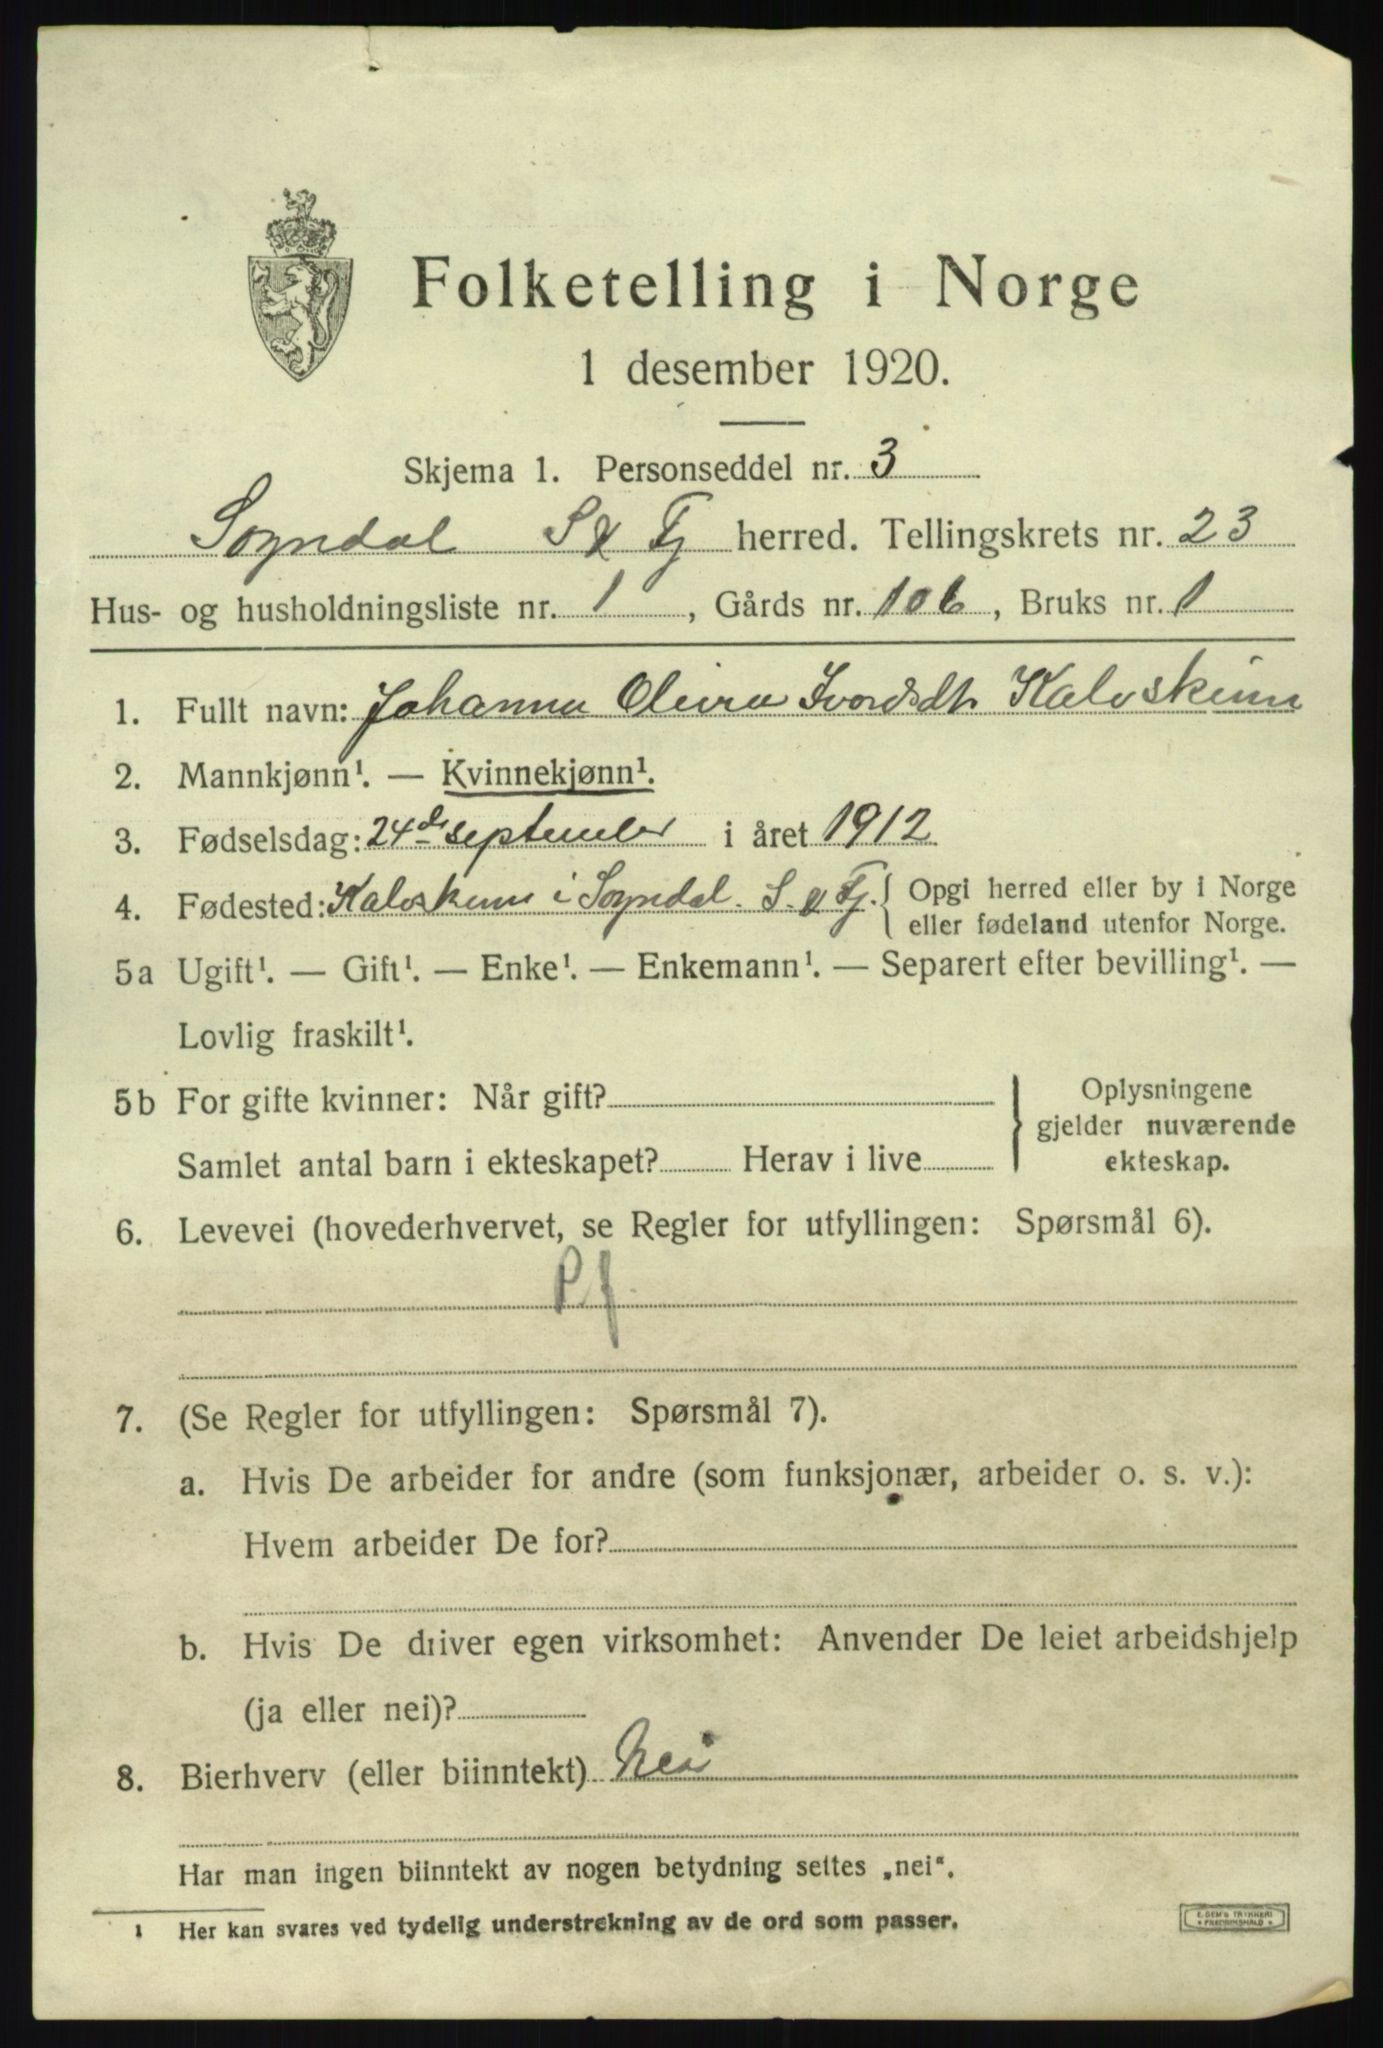 Folketelling i Norge
1 desember 1920.
Skjema 1. Personseddel nr. 3
Sogndal S & Fj herred. Tellingskrets nr. 23
Hus- og husholdningsliste nr. 1, Gårds nr. 106, Bruks nr. 1
1. Fullt navn: Johanna Olivia Ivarsdtr Kalvskinn
2. Mannkjønn¹. — Kvinnekjønn¹.
3. Fødselsdag: 24de september i året 1912
4. Fødested: Kalvskinn i Sogndal. S. & Fj. { Opgi herred eller by i Norge
eller fødeland utenfor Norge.
5a Ugift¹. — Gift¹. — Enke¹. — Enkemann¹. — Separert efter bevilling¹. —
Lovlig fraskilt¹.
5b For gifte kvinner: Når gift?
Samlet antal barn i ekteskapet? Herav i live
Oplysningene
gjelder nuværende
ekteskap.
6. Levevei (hovederhvervet, se Regler for utfyllingen: Spørsmål 6).
P f.
7. (Se Regler for utfyllingen: Spørsmål 7).
a. Hvis De arbeider for andre (som funksjonær, arbeider o. s. v.):
Hvem arbeider De for?
b. Hvis De driver egen virksomhet: Anvender De leiet arbeidshjelp
(ja eller nei)?
8. Bierhverv (eller biinntekt) Nei
Har man ingen biinntekt av nogen betydning settes „nei“.
¹ Her kan svares ved tydelig understrekning av de ord som passer.
E. SEM's TRYKKERI
FREDRIKSHALD